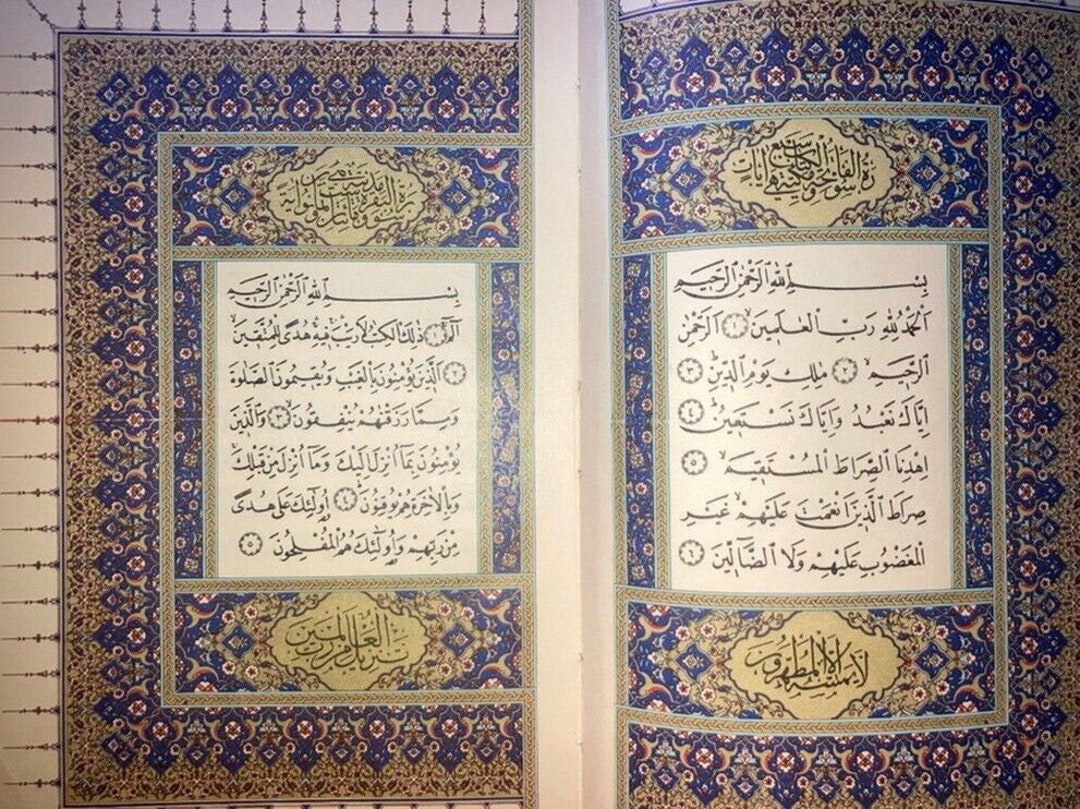 سورة فاتحة الكتاب مكية وهي سبع آيات
بِسْمِ اللهِ الرَّحْمٰنِ الرَّحِيمِ
اَلْحَمْدُ لِلّٰهِ رَبِّ الْعَالَمِينَۙ ﴿١﴾ اَلرَّحْمٰنِ
الرَّحِيمِۙ ﴿٢﴾ مٰلِكِ يَوْمِ الدِّينِۜ ﴿٣﴾
اِيَّاكَ نَعْبُدُ وَاِيَّاكَ نَسْتَعِينُۜ ﴿٤﴾
اِهْدِنَا الصِّرَاطَ الْمُسْتَقِيمَۙ ﴿٥﴾
صِرَاطَ الَّذِينَ اَنْعَمْتَ عَلَيْهِمْۙ غَيْرِ
الْمَغْضُوبِ عَلَيْهِمْ وَلَا الضَّٓالِّينَ ﴿٦﴾
لا يمسه الا المطهرون
سورة البقرة مدنية وهي
بِسْمِ اللهِ الرَّحْمٰنِ الرَّحِيمِ
الٓمٓۜ ﴿١﴾ ذٰلِكَ الْكِتَابُ لَا رَيْبَۚ فِيهِۚ هُدًى لِلْمُتَّقِينَۙ
﴿٢﴾ اَلَّذِينَ يُؤْمِنُونَ بِالْغَيْبِ وَيُقِيمُونَ الصَّلٰوةَ
وَمِمَّا رَزَقْنَاهُمْ يُنْفِقُونَۙ ﴿٣﴾ وَالَّذِينَ
يُؤْمِنُونَ بِمَٓا اُنْزِلَ اِلَيْكَ وَمَٓا اُنْزِلَ مِنْ قَبْلِكَۚ
وَبِالْاٰخِرَةِ هُمْ يُوقِنُونَۜ ﴿٤﴾ اُو۬لٰٓئِكَ عَلٰى هُدًى
مِنْ رَبِّهِمْ وَاُو۬لٰٓئِكَ هُمُ الْمُفْلِحُونَ ﴿٥﴾
تنزيل من رب العالمين